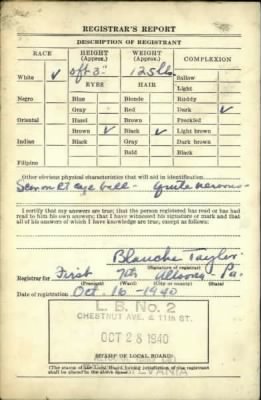 REGISTRAR'S REPORT
DESCRIPTION OF REGISTRANT
RACE HEIGHT (Approx.) WEIGHT (Approx.) COMPLEXION
White ✓ 5ft 3" 125 lb. Sallow
EYES HAIR Light
Negro Blue Blonde Ruddy
Gray Red Dark ✓
Oriental Hazel Brown Freckled
Brown ✓ Black ✓ Light brown
Indian Black Gray Dark brown
Bald Black
Filipino
Other obvious physical characteristics that will aid in identification
Rt eye ball - quite nervous
I certify that my answers are true; that the person registered has read or has had read to him his own answers; that I have witnessed his signature or mark and that all of his answers of which I have knowledge are true, except as follows:
Blanche Taylor
(Signature of registrar)
Registrar for First 7th Altoona - Pa.
(Precinct) (Ward) (City or county) (State)
Date of registration Oct. 16 - 1940
L. B. No. 2
CHESTNUT AVE. & 11th ST.
OCT 28 1940
(STAMP OF LOCAL BOARD)
(The stamp of the Local Board having jurisdiction of the registrant shall be placed in the above space.)